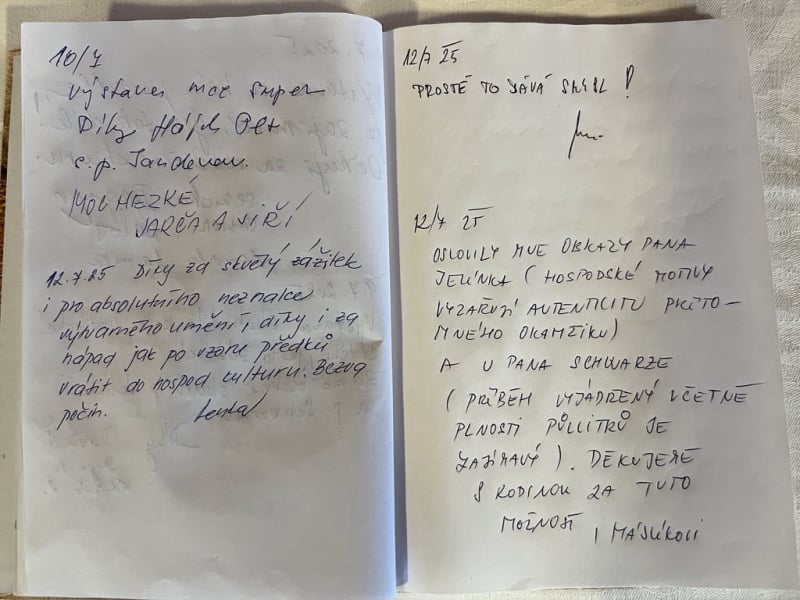 10/7
Výstava moc super
Díky Hájek Petr
c.p.
MOC HEZKÉ
JARČA A JIŘÍ
12.7.25 Díky za skvělý zážitek
i pro absolutního neznalce
výtvarného umění, díky i za
nápad jak po vzoru předků
vrátit do hospod kulturu. Bezva
počin. Lenka
12/7 25
PROSTĚ TO DÁVÁ SMYSL!
12/7 25
OSLOVILY MNE OBRAZY PANA
JELÍNKA (HOSPODSKÉ MOTIVY
VYZAŘUJÍ AUTENTICITU PŘÍTO-
MNÉHO OKAMŽIKU)
A U PANA SCHWARZE
(PŘÍBĚH VYJÁDŘENÝ VČETNĚ
PLNOSTI PŮLLITRŮ JE
ZAJÍMAVÝ). DĚKUJEME
S RODINOU ZA TUTO
MOŽNOST, MÁSLÍKOVI